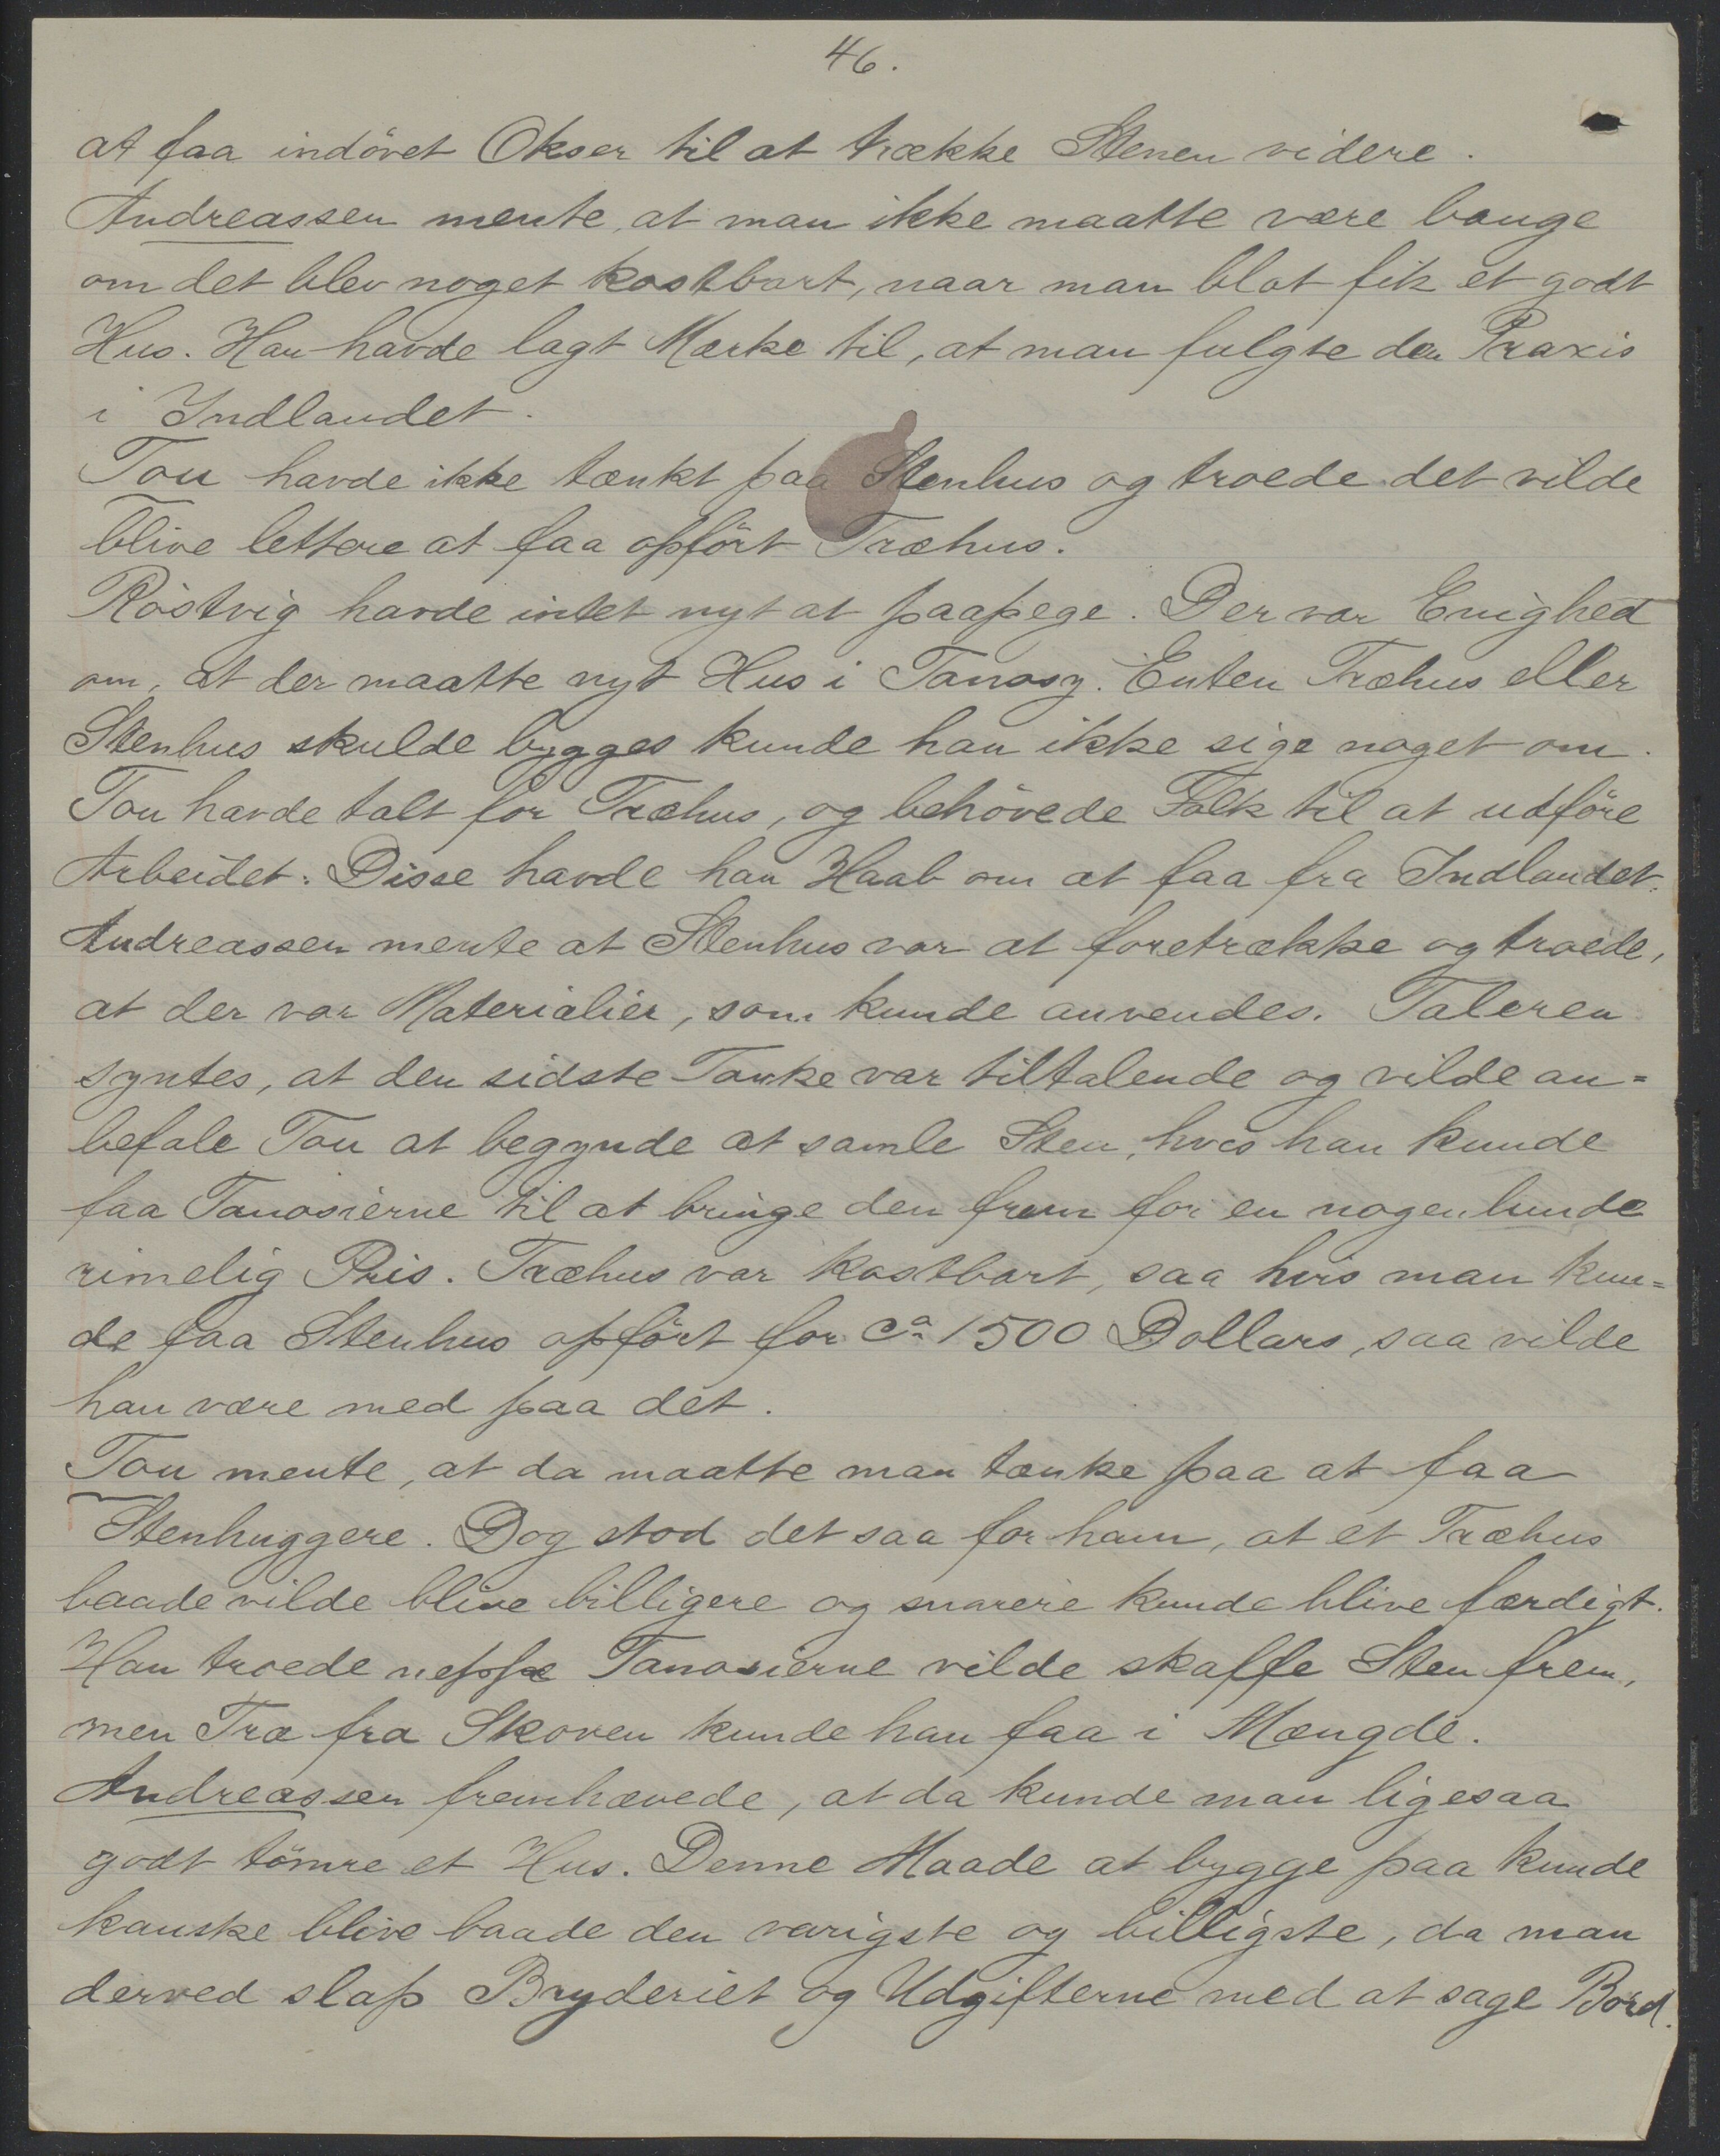 46.
at faa indövet Okser til at trække Stenen videre.
Andreassen mente, at man ikke maatte være bange
om det blev noget kostbart, naar man blot fik et godt
Hus. Han havde lagt Mærke til, at man fulgte den Praxis
i Indlandet.
Tou havde ikke tænkt paa Stenhus og troede det vilde
blive lettere at faa opfört Træhus.
Röstvig havde intet nyt at paapege. Der var Enighed
om, at der maatte nyt Hus i Tanosy. Enten Træhus eller
Stenhus skulde bygges kunde han ikke sige noget om.
Tou havde talt for Træhus, og behövede Folk til at udföre
Arbeidet. Disse havde han Haab om at faa fra Indlandet.
Andreassen mente at Stenhus var at foretrække og troede,
at der var Materialier, som kunde anvendes. Taleren
syntes, at den sidste Tanke var tiltalende og vilde an=
befale Tou at begynde at samle Sten, hvis han kunde
faa Tanosierne til at bringe den frem for en nogenlunde
rimelig Pris. Træhus var kostbart, saa hvis man kun=
de faa Stenhus opfört for ca 1500 Dollars, saa vilde
han være med paa det.
Tou mente, at da maatte man tænke paa at faa
Stenhuggere. Dog stod det saa for ham, at et Træhus
baade vilde blive billigere og snarere kunde blive færdigt.
Han troede neppe Tanosierne vilde skaffe Sten frem,
men Træ fra Skoven kunde han faa i Mængde.
Andreassen fremhævede, at da kunde man ligesaa
godt tömre et Hus. Denne Maade at bygge paa kunde
kanske blive baade den varigste og billigste, da man
derved slap Bryderiet og Udgifterne med at sage Bord.